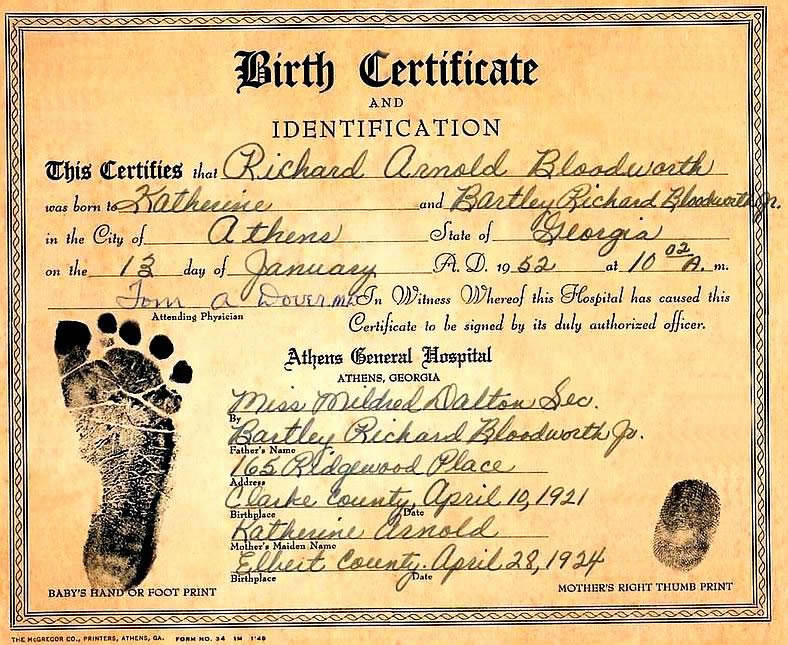 Birth Certificate
AND
IDENTIFICATION
This Certifies that Richard Arnold Bloodworth
was born to Katherine and Bartley Richard Bloodworth Jr.
in the City of Athens State of Georgia
on the 13 day of January A. D. 1952 at 10 02 A. m.
Tom A Dover M.D. In Witness Whereof this Hospital has caused this
Attending Physician
Certificate to be signed by its duly authorized officer.
Athens General Hospital
ATHENS, GEORGIA
Miss Mildred Dalton Sec.
By
Bartley Richard Bloodworth Jr.
Father's Name
165 Ridgewood Place
Address
Clarke County, April 10, 1921
Birthplace Date
Katherine Arnold
Mother's Maiden Name
Elbert County. April 28, 1924
Birthplace Date
BABY'S HAND OR FOOT PRINT MOTHER'S RIGHT THUMB PRINT
THE McGREGOR CO., PRINTERS, ATHENS, GA. FORM NO. 34 1M 1'49